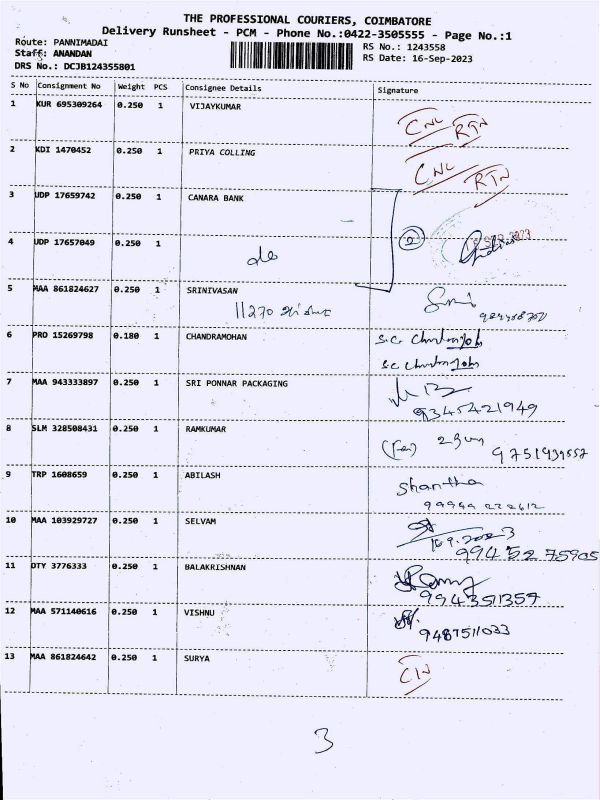 THE PROFESSIONAL COURIERS, COIMBATORE
Delivery Runsheet - PCM - Phone No.:0422-3505555 - Page No.:1
Route: PANNIMADAI
RS No.: 1243558
Staff: ANANDAN
RS Date: 16-Sep-2023
DRS No.: DCJB124355801
S No Consignment No Weight PCS Consignee Details Signature
1 KUR 695309264 0.250 1 VIJAYKUMAR
CNL RTN
2 KDI 1470452 0.250 1 PRIYA COLLING
CNL RTN
3 UDP 17659742 0.250 1 CANARA BANK
4 UDP 17657049 0.250 1
do
2
5 MAA 861824627 0.250 1 SRINIVASAN
11270
6 PRO 15269798 0.180 1 CHANDRAMOHAN
7 MAA 943333897 0.250 1 SRI PONNAR PACKAGING
9345421949
8 SLM 328508431 0.250 1 RAMKUMAR
9751939557
9 TRP 1608659 0.250 1 ABILASH
Shantha
10 MAA 103929727 0.250 1 SELVAM
16.9.2023
99452 75905
11 OTY 3776333 0.250 1 BALAKRISHNAN
994351357
12 MAA 571140616 0.250 1 VISHNU
9487511033
13 MAA 861824642 0.250 1 SURYA
3